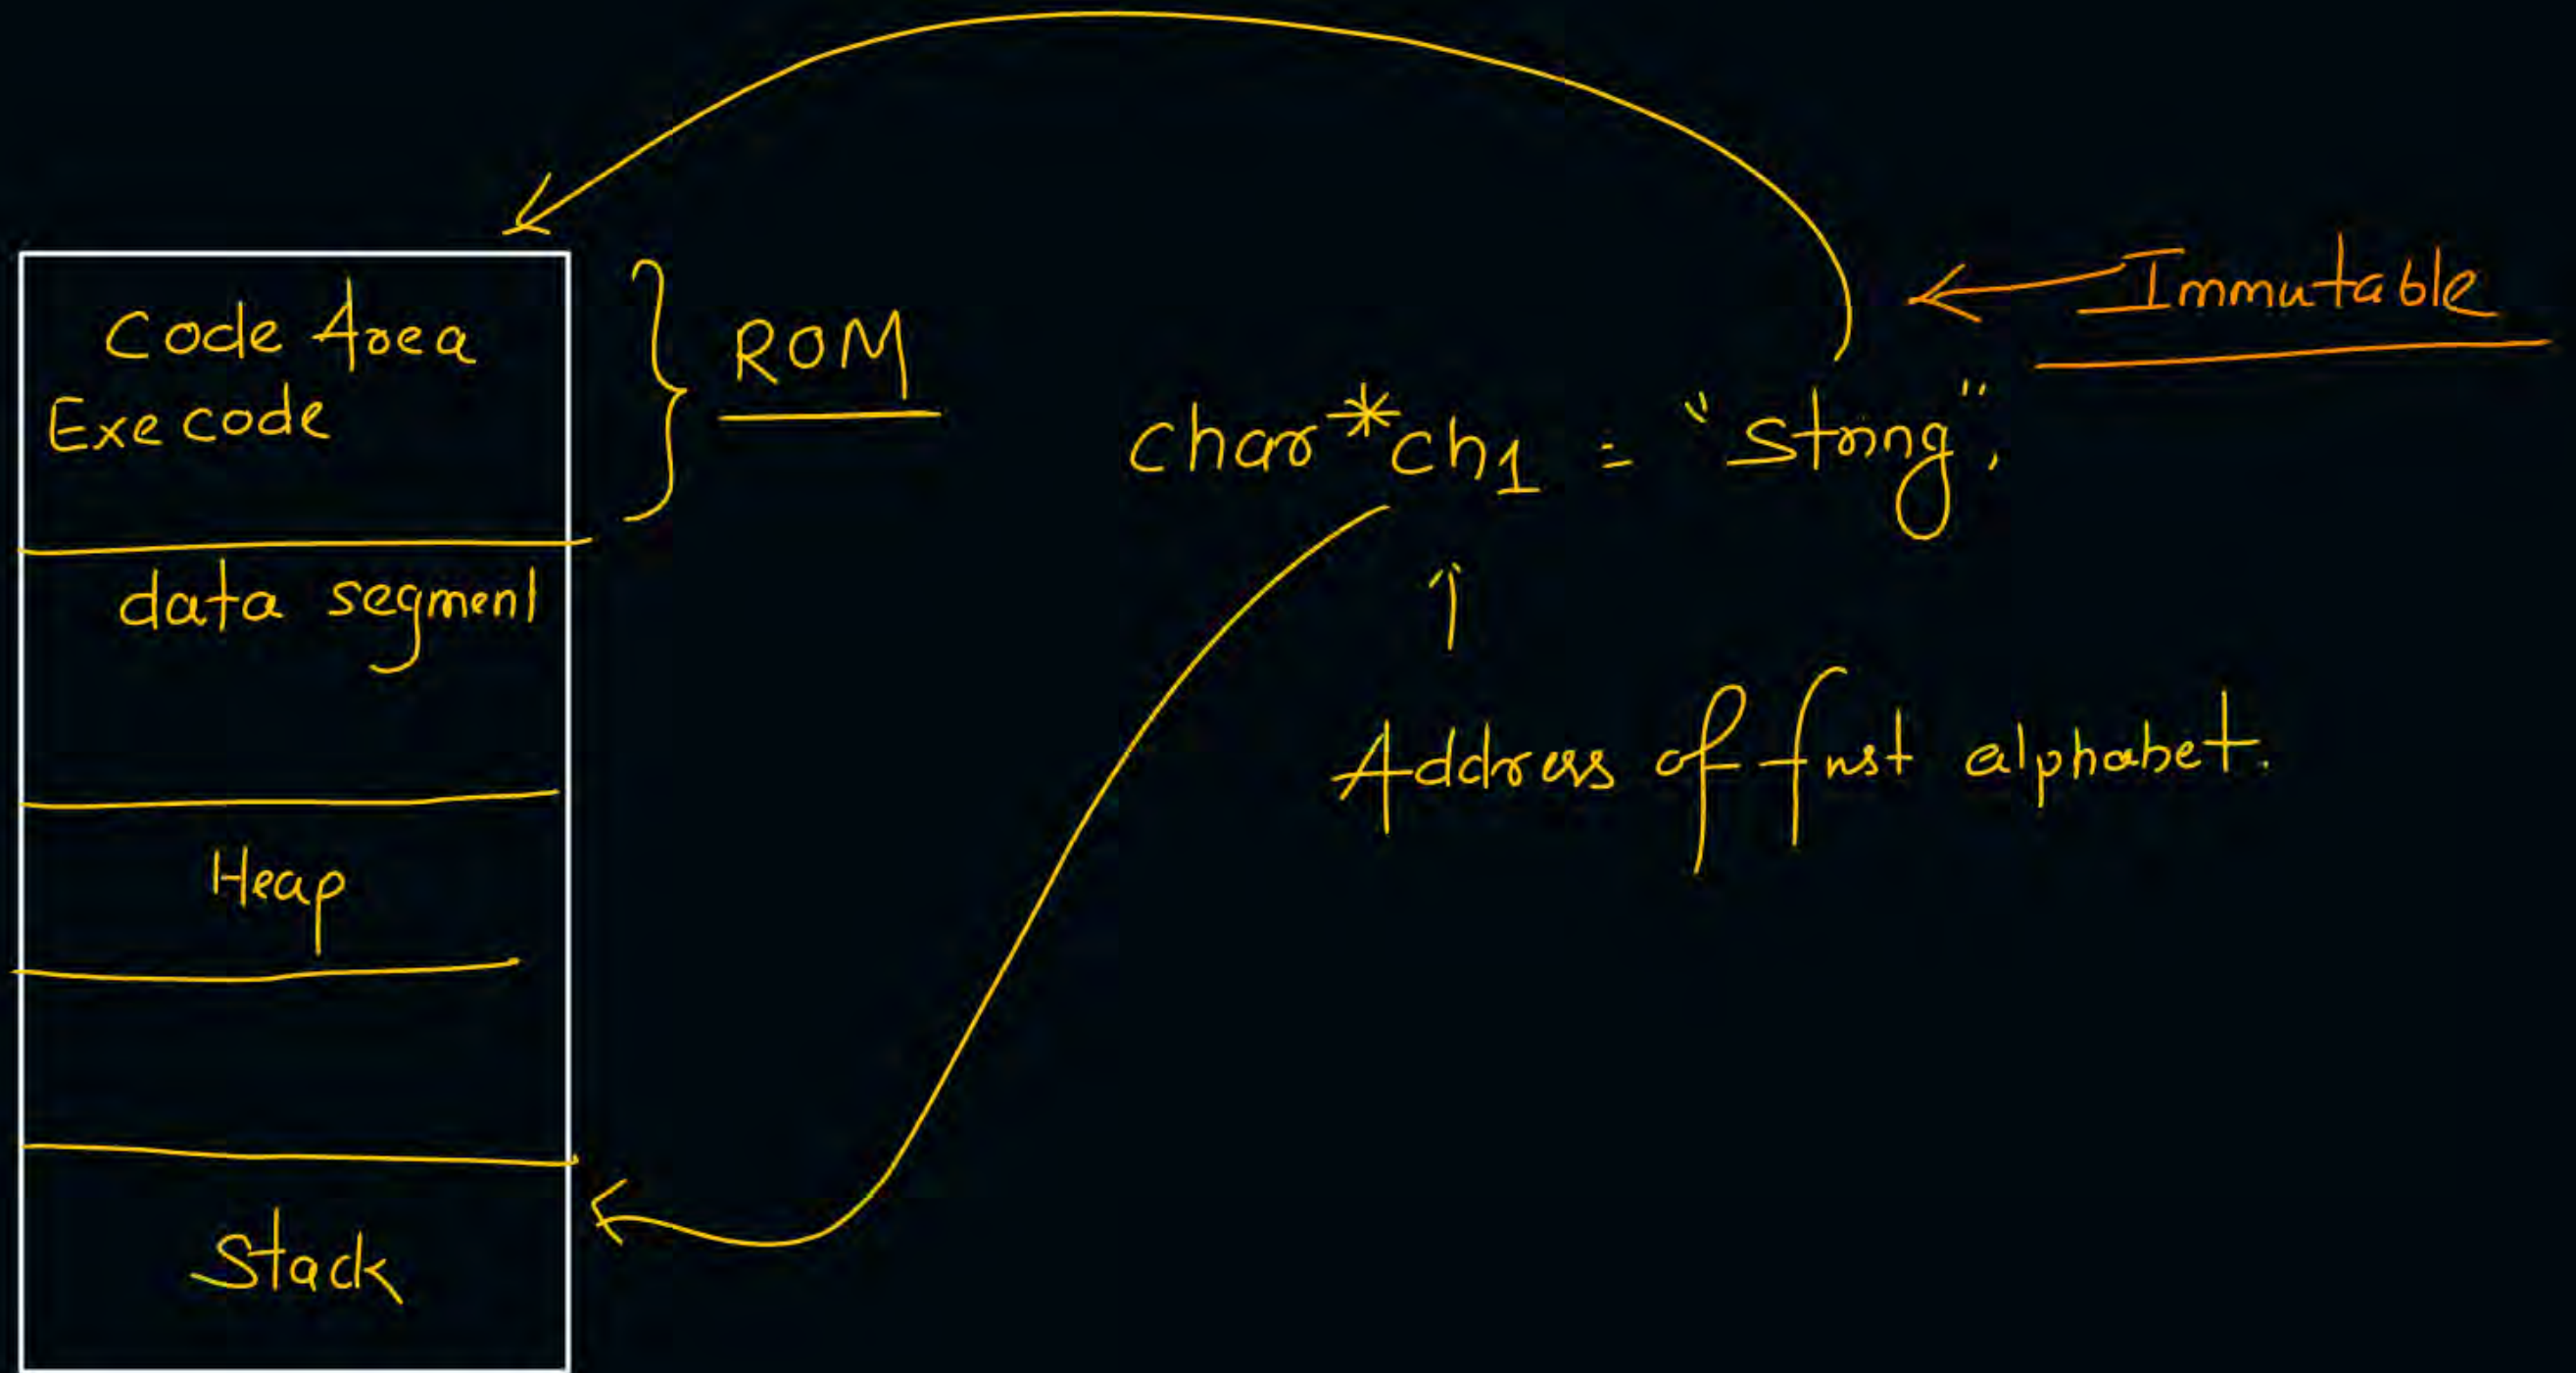 Code Area
Exe code
ROM
data segment
Heap
Stack
Immutable
char *ch1 = "String".
↑
Address of first alphabet.